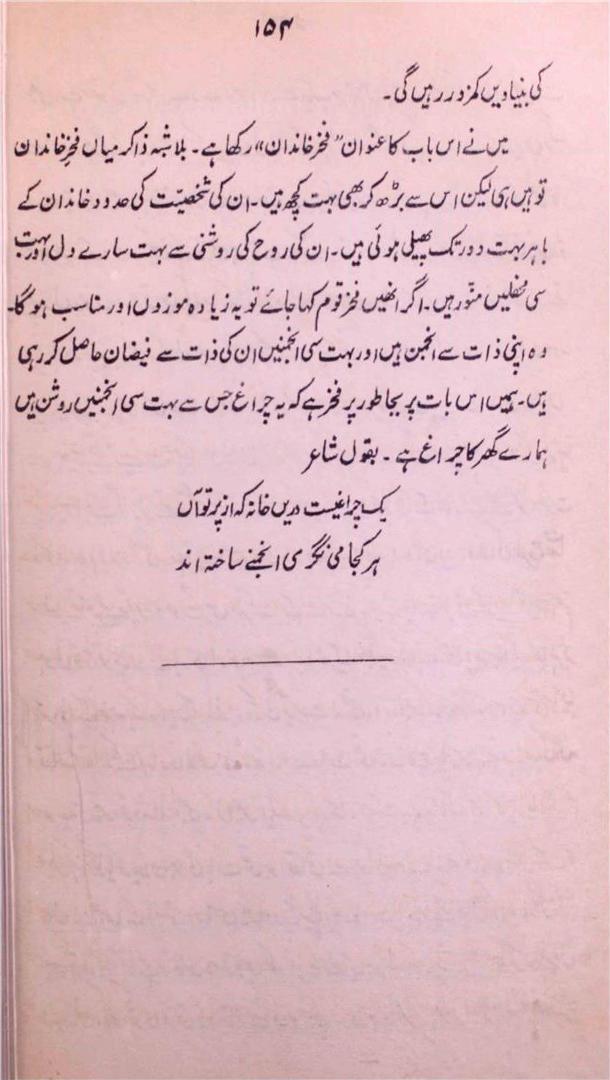 ۱۵۴
کی بنیادیں کمزور رہیں گی۔
میں نے اس باب کا عنوان ”فخر خاندان“ رکھا ہے۔ بلاشبہ ذاکر میاں فخرِ خاندان
تو ہیں ہی لیکن اس سے بڑھ کر بھی بہت کچھ ہیں۔ ان کی شخصیّت کی حدود خاندان کے
باہر بہت دور تک پھیلی ہوئی ہیں۔ ان کی روح کی روشنی سے بہت سارے دل اور بہت
سی محفلیں منوّر ہیں۔ اگر انھیں فخرِ قوم کہا جائے تو یہ زیادہ موزوں اور مناسب ہوگا۔
وہ اپنی ذات سے انجمن ہیں اور بہت سی انجمنیں ان کی ذات سے فیضان حاصل کر رہی
ہیں۔ ہمیں اس بات پر بجا طور پر فخر ہے کہ یہ چراغ جس سے بہت سی انجمنیں روشن ہیں
ہمارے گھر کا چراغ ہے۔ بقول شاعر
یک چراغیست دریں خانہ کہ از پرتو آں
ہر کجا می نگری انجمنے ساختہ اند